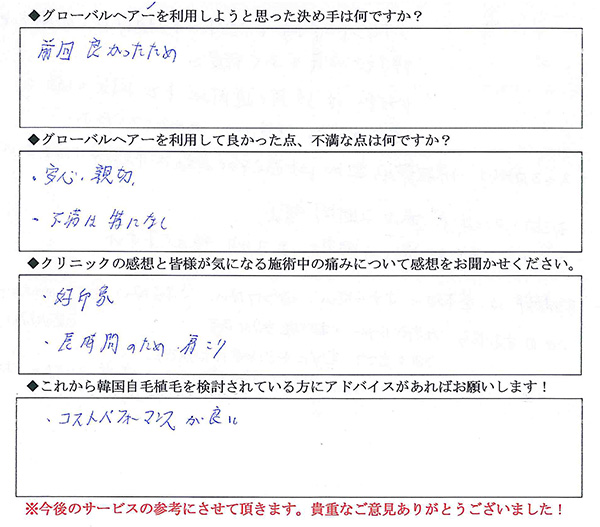 ◆グローバルヘアーを利用しようと思った決め手は何ですか？
前回 良かったため
◆グローバルヘアーを利用して良かった点、不満な点は何ですか？
・安心・親切、
・不満は特になし
◆クリニックの感想と皆様が気になる施術中の痛みについて感想をお聞かせください。
・好印象
・長時間のため 肩こり
◆これから韓国自毛植毛を検討されている方にアドバイスがあればお願いします！
・コストパフォーマンスが良い
※今後のサービスの参考にさせて頂きます。貴重なご意見ありがとうございました！